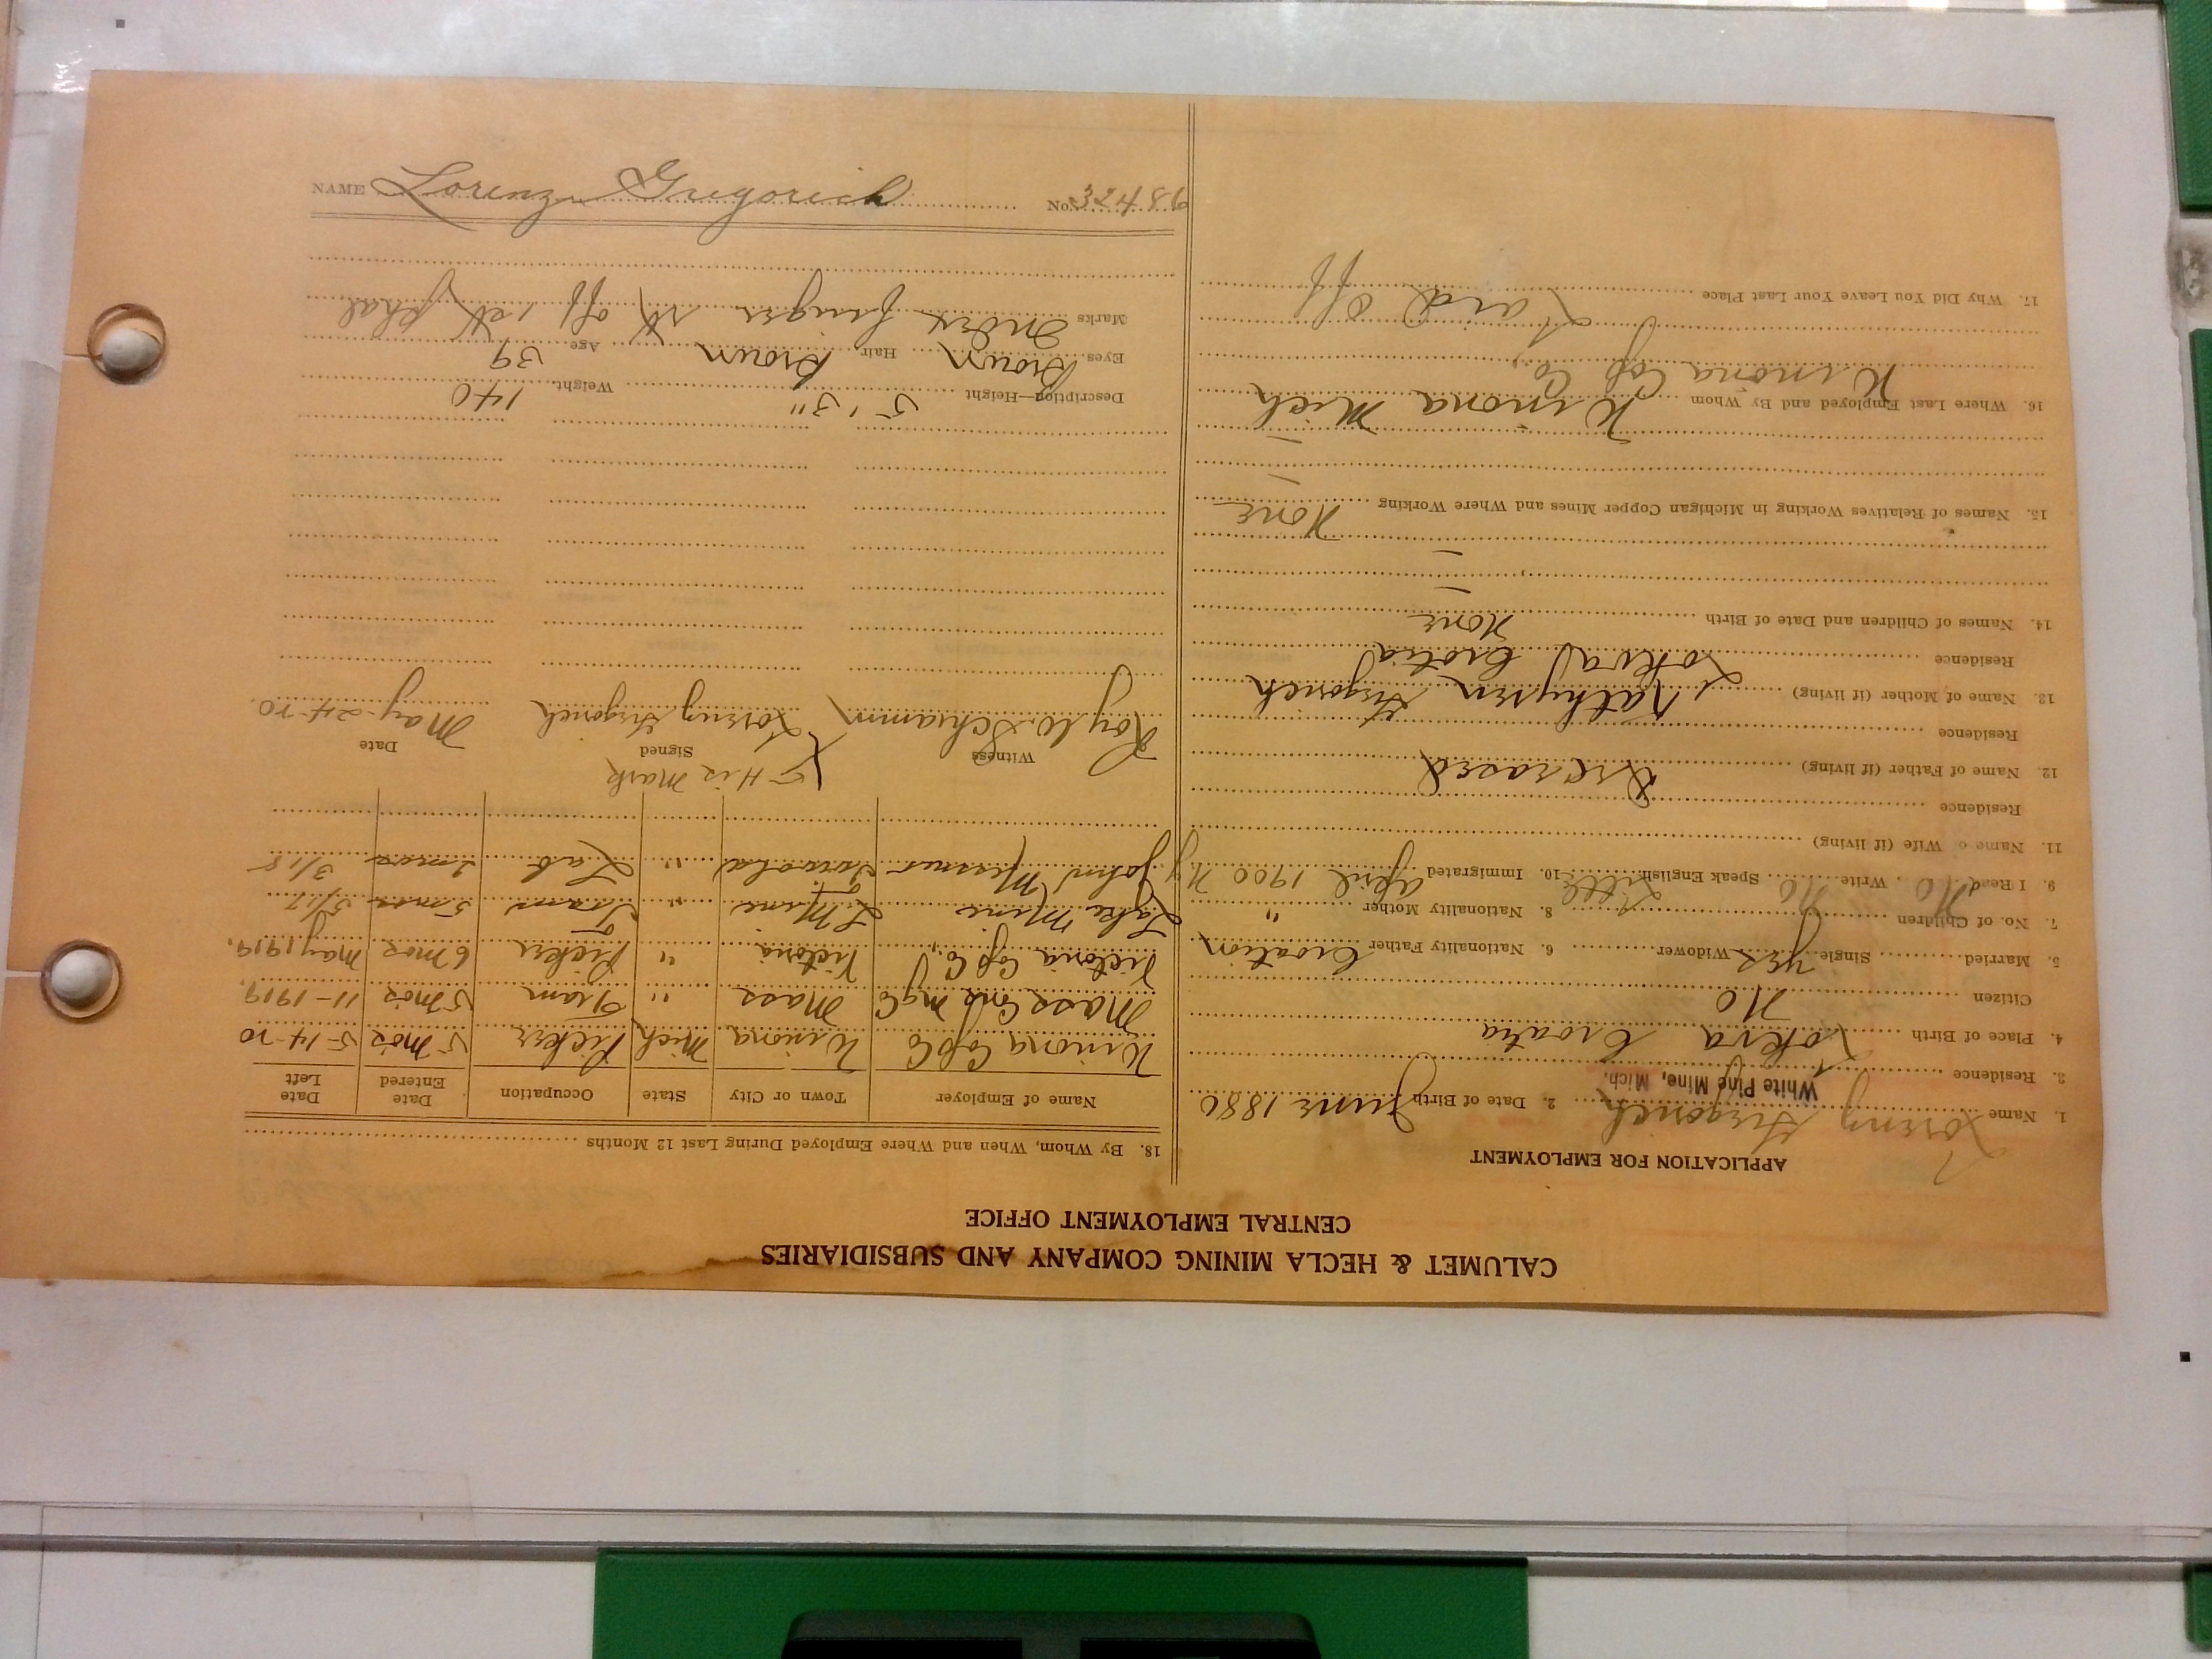 CALUMET & HECLA MINING COMPANY AND SUBSIDIARIES
CENTRAL EMPLOYMENT OFFICE
APPLICATION FOR EMPLOYMENT
1. Name Lorenz Gregorich 2. Date of Birth June 1880
3. Residence White Pine Mine, Mich.
4. Place of Birth Lokva Croatia
Citizen No
5. Married Single yes Widower 6. Nationality Father Croatian
7. No. of Children 8. Nationality Mother "
9. I Read No Write No Speak English Little 10. Immigrated April 1900 N.Y.
11. Name o Wife (if living)
Residence
12. Name of Father (if living) Deceased
Residence
13. Name of Mother (if living) Kathyren Gregorich
Residence Lokva Crotia
14. Names of Children and Date of Birth None
15. Names of Relatives Working in Michigan Copper Mines and Where Working None
16. Where Last Employed and By Whom Winona Mich
Winona Cop Co.,
17. Why Did You Leave Your Last Place Laid Off
18. By Whom, When and Where Employed During Last 12 Months
Name of Employer Town or City State Occupation Date Entered Date Left
Winona Cop Co Winona Mich Picker 5 mos 5-14-20
Mass Con Mg Co Mass " Tram 5 mos 11-1919.
Victoria Cop Co., Victoria " Picker 6 mos May 1919.
Lake Mine L. Mine " Tram 5 mos 5/17
John " Lab 2 mos 3/18
X His Mark
Witness Signed Date
Roy W. Schramm Lorenz Gregorich May-24-20.
Description—Height 5' 3" Weight 140
Eyes Brown Hair Brown Age 39
Marks Index finger off 1st
NAME Lorenz Gregorich No. 32486